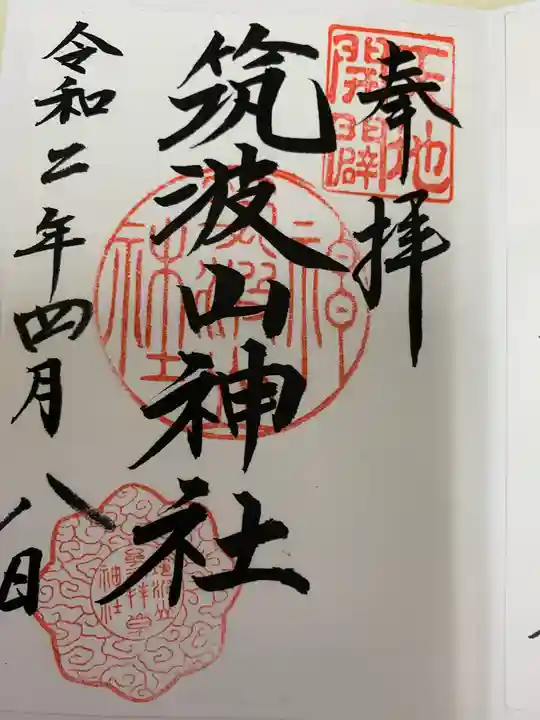 奉拝
天地開闢
筑波山神社
令和二年四月八日